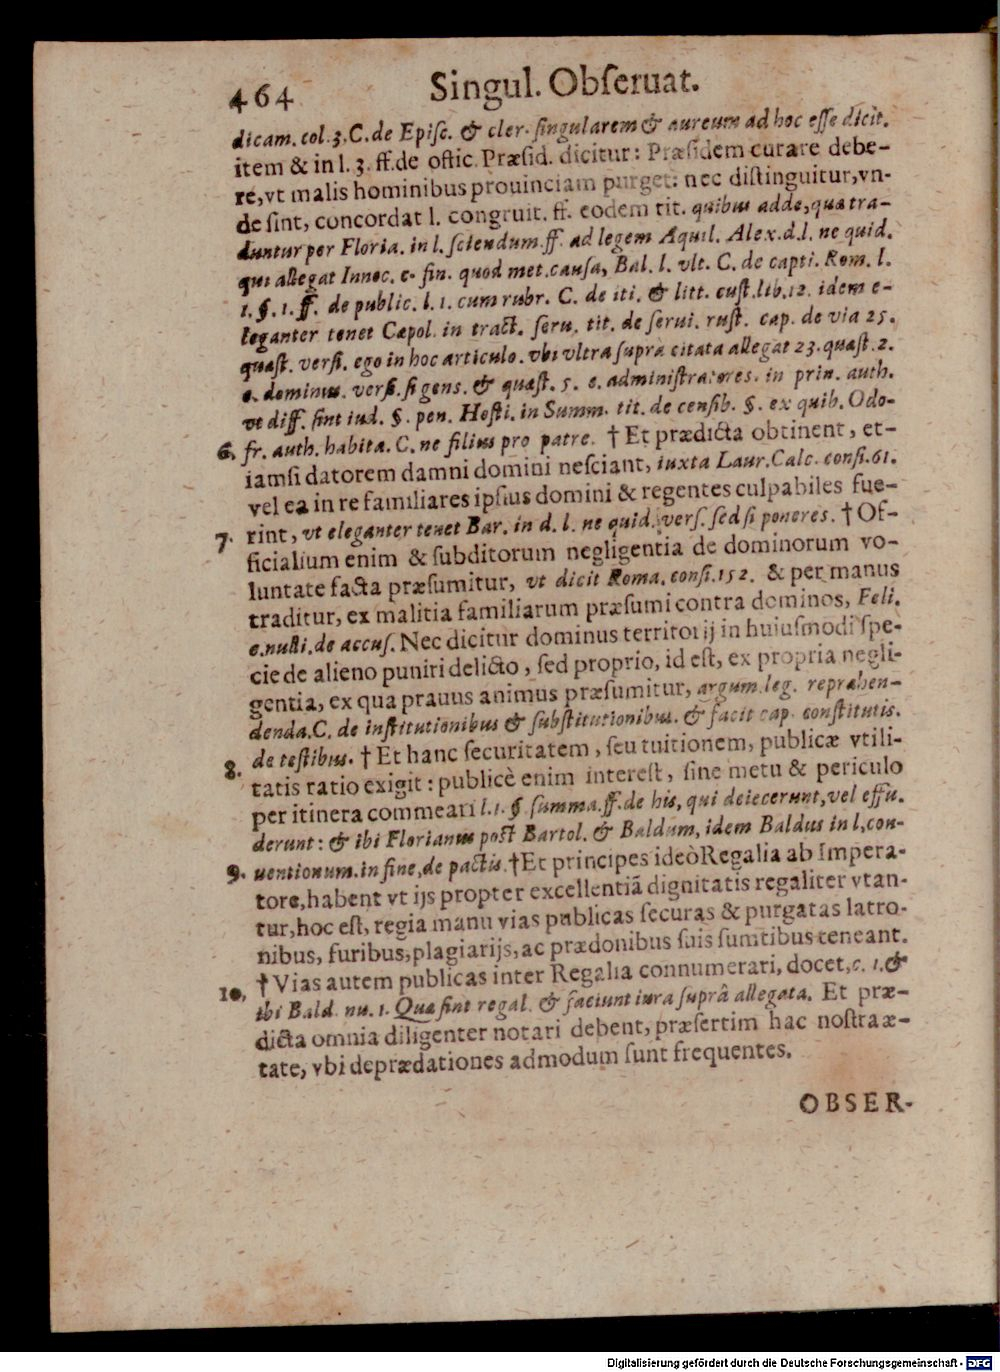 464 Singul. Obſeruat.
dicam. col. 3. C. de Epiſc. & cler. ſingularem & aureum ad hoc eſſe dicit.
item & in l. 3. ff. de offic. Præſid. dicitur: Præſidem curare debe-
re, vt malis hominibus prouinciam purget: nec diſtinguitur, vn-
de ſint, concordat l. congruit. ff. eodem tit. quibus adde, quæ tra-
duntur per Floria. in l. ſciendum. ff. ad legem Aquil. Alex. d. l. ne quid.
qui allegat Innoc. c. fin. quod met. cauſa, Bal. l. vlt. C. de capti. Rom. l.
1. §. 1. ff. de public. l. 1. cum rubr. C. de iti. & litt. cuſt. lib. 12. idem e-
leganter tenet Cæpol. in tract. ſeru. tit. de ſerui. ruſt. cap. de via 25.
quæſt. verſi. ego in hoc articulo. vbi vltra ſuprà citata allegat 23. quæſt. 2.
c. dominus. verſ. ſi gens. & quæſt. 5. c. adminiſtratores. in prin. auth.
vt diff. ſint iud. §. pen. Hoſti. in Summ. tit. de cenſib. §. ex quib. Odo-
6. fr. auth. habita. C. ne filius pro patre. † Et prædicta obtinent, et-
iamſi datorem damni domini neſciant, iuxta Laur. Calc. conſi. 61.
vel ea in re familiares ipſius domini & regentes culpabiles fue-
7. rint, vt eleganter tenet Bar. in d. l. ne quid. verſ. ſed ſi poneres. † Of-
ficialium enim & ſubditorum negligentia de dominorum vo-
luntate facta præſumitur, vt dicit Roma. conſi. 152. & per manus
traditur, ex malitia familiarum præſumi contra dominos, Feli.
c. nulli. de accuſ. Nec dicitur dominus territorij in huiuſmodi ſpe-
cie de alieno puniri delicto, ſed proprio, id eſt, ex propria negli-
gentia, ex qua prauus animus præſumitur, argum. leg. reprehen-
denda. C. de inſtitutionibus & ſubſtitutionibus. & facit cap. conſtitutis.
8. de teſtibus. † Et hanc ſecuritatem, ſeu tuitionem, publicæ vtili-
tatis ratio exigit: publicè enim intereſt, ſine metu & periculo
per itinera commeari l. 1. §. ſumma. ff. de his, qui deiecerunt, vel effu-
derunt: & ibi Florianus poſt Bartol. & Baldum, idem Baldus in l. con-
9. uentionum. in fine, de pactis. † Et principes ideò Regalia ab Impera-
tore, habent vt ijs propter excellentiã dignitatis regaliter vtan-
tur, hoc eſt, regia manu vias publicas ſecuras & purgatas latro-
nibus, furibus, plagiarijs, ac prædonibus ſuis ſumtibus teneant.
10. † Vias autem publicas inter Regalia connumerari, docet, c. 1. &
ibi Bald. nu. 1. Quæ ſint regal. & faciunt iura ſuprâ allegata. Et præ-
dicta omnia diligenter notari debent, præſertim hac noſtra æ-
tate, vbi deprædationes admodum ſunt frequentes.
OBSER-
Digitalisierung gefördert durch die Deutsche Forschungsgemeinschaft - DFG